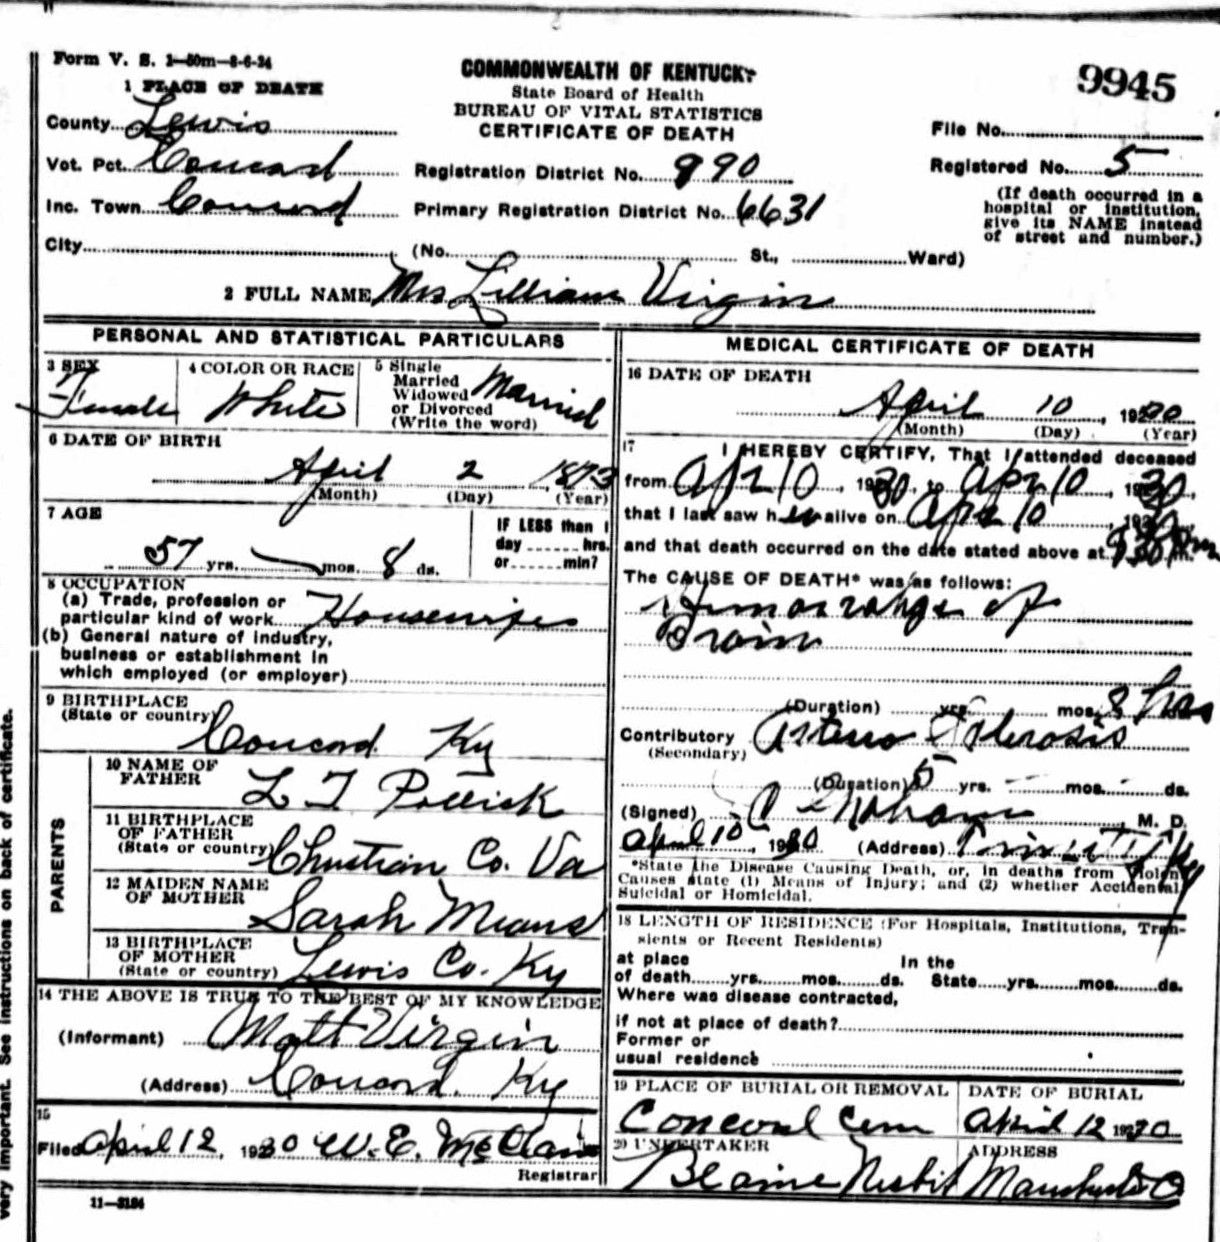 Form V. S. 1—50m—8-6-24
COMMONWEALTH OF KENTUCKY
State Board of Health
BUREAU OF VITAL STATISTICS
CERTIFICATE OF DEATH
9945
1 PLACE OF DEATH
County Lewis
Vot. Pct. Concord
Inc. Town Concord
City (No. St., Ward)
Registration District No. 890
Primary Registration District No. 6631
File No.
Registered No. 5
(If death occurred in a
hospital or institution,
give its NAME instead
of street and number.)
2 FULL NAME Mrs Lilliam Virgin
PERSONAL AND STATISTICAL PARTICULARS
3 SEX
Female
4 COLOR OR RACE
White
5 Single
Married
Widowed
or Divorced
(Write the word)
Married
6 DATE OF BIRTH
April 2 1873
(Month) (Day) (Year)
7 AGE
57 yrs. mos. 8 ds.
IF LESS than 1
day hrs.
or min?
8 OCCUPATION
(a) Trade, profession or
particular kind of work Housewife
(b) General nature of industry,
business or establishment in
which employed (or employer)
9 BIRTHPLACE
(State or country)
Concord Ky
PARENTS
10 NAME OF
FATHER
L T Pollick
11 BIRTHPLACE
OF FATHER
(State or country)
Christian Co. Va
12 MAIDEN NAME
OF MOTHER
Sarah Means
13 BIRTHPLACE
OF MOTHER
(State or country) Lewis Co. Ky
14 THE ABOVE IS TRUE TO THE BEST OF MY KNOWLEDGE
(Informant) Matt Virgin
(Address) Concord. Ky
15
Filed April 12, 1930 W. E. McClain
Registrar
11—3184
MEDICAL CERTIFICATE OF DEATH
16 DATE OF DEATH
April 10, 1930
(Month) (Day) (Year)
17 I HEREBY CERTIFY, That I attended deceased
from Apr 10, 1930, to Apr 10, 1930,
that I last saw her alive on Apr 10, 1930,
and that death occurred on the date stated above at 930 Pm.
The CAUSE OF DEATH* was as follows:
Hemorrahge of
Brain
(Duration) yrs. mos. 8 hrs
Contributory Arterio Sclerosis
(Secondary)
(Duration) 5 yrs. mos. ds.
(Signed) M. D.
April 10, 1930 (Address)
*State the Disease Causing Death, or, in deaths from Violent
Causes state (1) Means of Injury; and (2) whether Accidental,
Suicidal or Homicidal.
18 LENGTH OF RESIDENCE (For Hospitals, Institutions, Tran-
sients or Recent Residents)
at place In the
of death yrs. mos. ds. State yrs. mos. ds.
Where was disease contracted,
if not at place of death?
Former or
usual residence
19 PLACE OF BURIAL OR REMOVAL
Concord Cem
DATE OF BURIAL
April 12 1930
20 UNDERTAKER
Blaine Nesbit
ADDRESS
O
very important. See instructions on back of certificate.